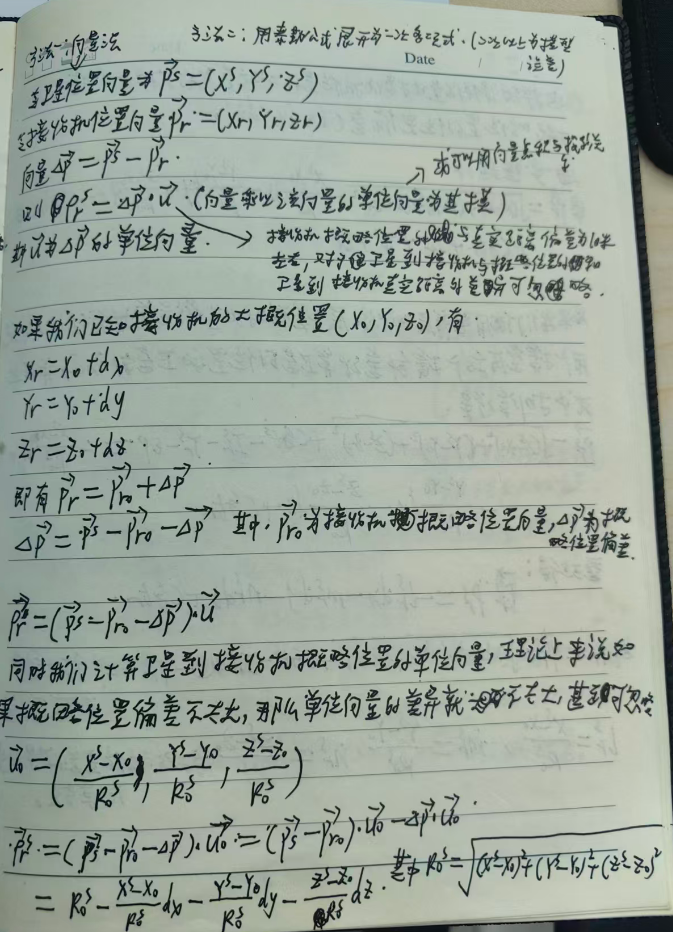 方法一:向量法
方法二:用泰勒公式展开为一次多项式.(二次以上为模型
误差)
Date
令卫星位置向量为 P⃗s=(Xˢ,Yˢ,Zˢ)
令接收机位置向量P⃗r=(Xr,Yr,Zr)
向量ΔP⃗=P⃗s-P⃗r.
则 ρrˢ=ΔP⃗·u⃗.(向量乘以该向量的单位向量为其模)
其中u⃗为ΔP⃗的单位向量.
接收机概略位置与真实距离偏差为10米
左右,卫星到接收机与概略位置
卫星到接收机真实距离的差异可忽略.
如果我们已知接收机的大概位置(X0,Y0,Z0),有.
Xr=X0+dx
Yr=Y0+dy
Zr=Z0+dz
即有P⃗r=P⃗r0+ΔP⃗
ΔP⃗=P⃗s-P⃗r0-ΔP⃗ 其中.P⃗r0为接收机概略位置向量,ΔP⃗为概
略位置偏差.
ρrˢ=(P⃗s-P⃗r0-ΔP⃗)·u⃗
同时我们计算卫星到接收机概略位置的单位向量,理论上来说如
果概略位置偏差不太大,那么单位向量的差异就不太大,甚至可忽略
u⃗0=(Xˢ-X0/R0ˢ,Yˢ-Y0/R0ˢ,Zˢ-Z0/R0ˢ)
ρrˢ=(P⃗s-P⃗r0-ΔP⃗)·u⃗0=(P⃗s-P⃗r0)·u⃗0-ΔP⃗·u⃗0.
=R0ˢ-Xˢ-X0/R0ˢ dx-Yˢ-Y0/R0ˢ dy-Zˢ-Z0/R0ˢ dz. 其中R0ˢ=√(Xˢ-X0)²+(Yˢ-Y0)²+(Zˢ-Z0)²